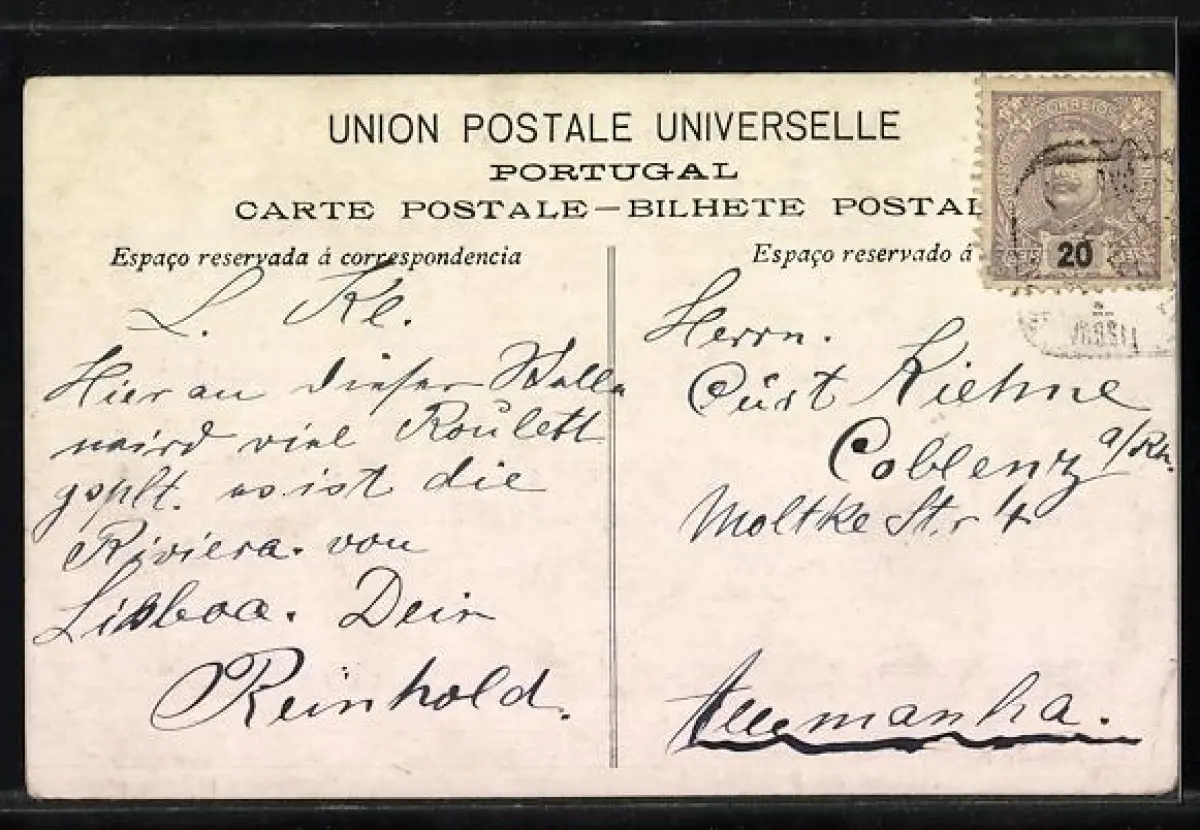 UNION POSTALE UNIVERSELLE
PORTUGAL
CARTE POSTALE—BILHETE POSTAL
Espaço reservada á correspondencia
L. Kl.
Hier an dieser Stelle
wird viel Roulett
gsplt. es ist die
Riviera. von
Lisboa. Dein
Reinhold.
CORREIOS
20
REIS
Espaço reservado á
Herrn.
Cürt Kiehne
Coblenz a/Rh.
Moltke Str 4
Allemanha.